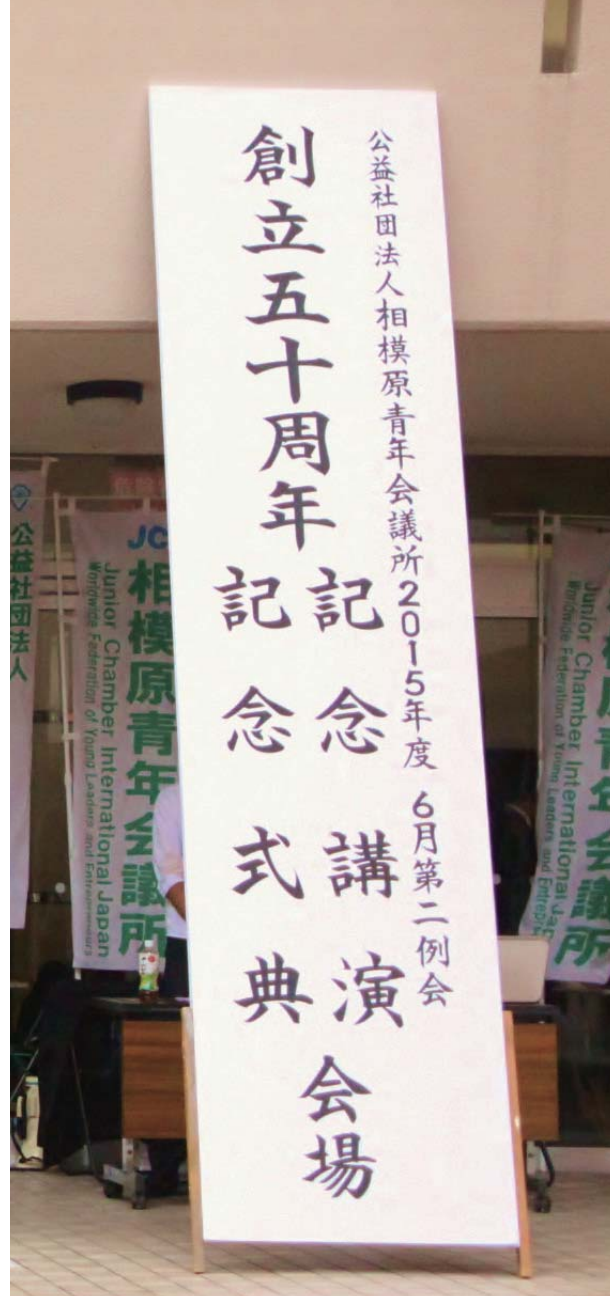 公益社団法人相模原青年会議所2015年度 6月第二例会
創立五十周年
記念講演
記念式典
会場
公益社団法人
JC
相模原青年会議所
Junior Chamber International Japan
Worldwide Federation of Young Leaders and Entrepreneurs
原青年会議所
Junior Chamber International Japan
Worldwide Federation of Young Leaders and Entrepre